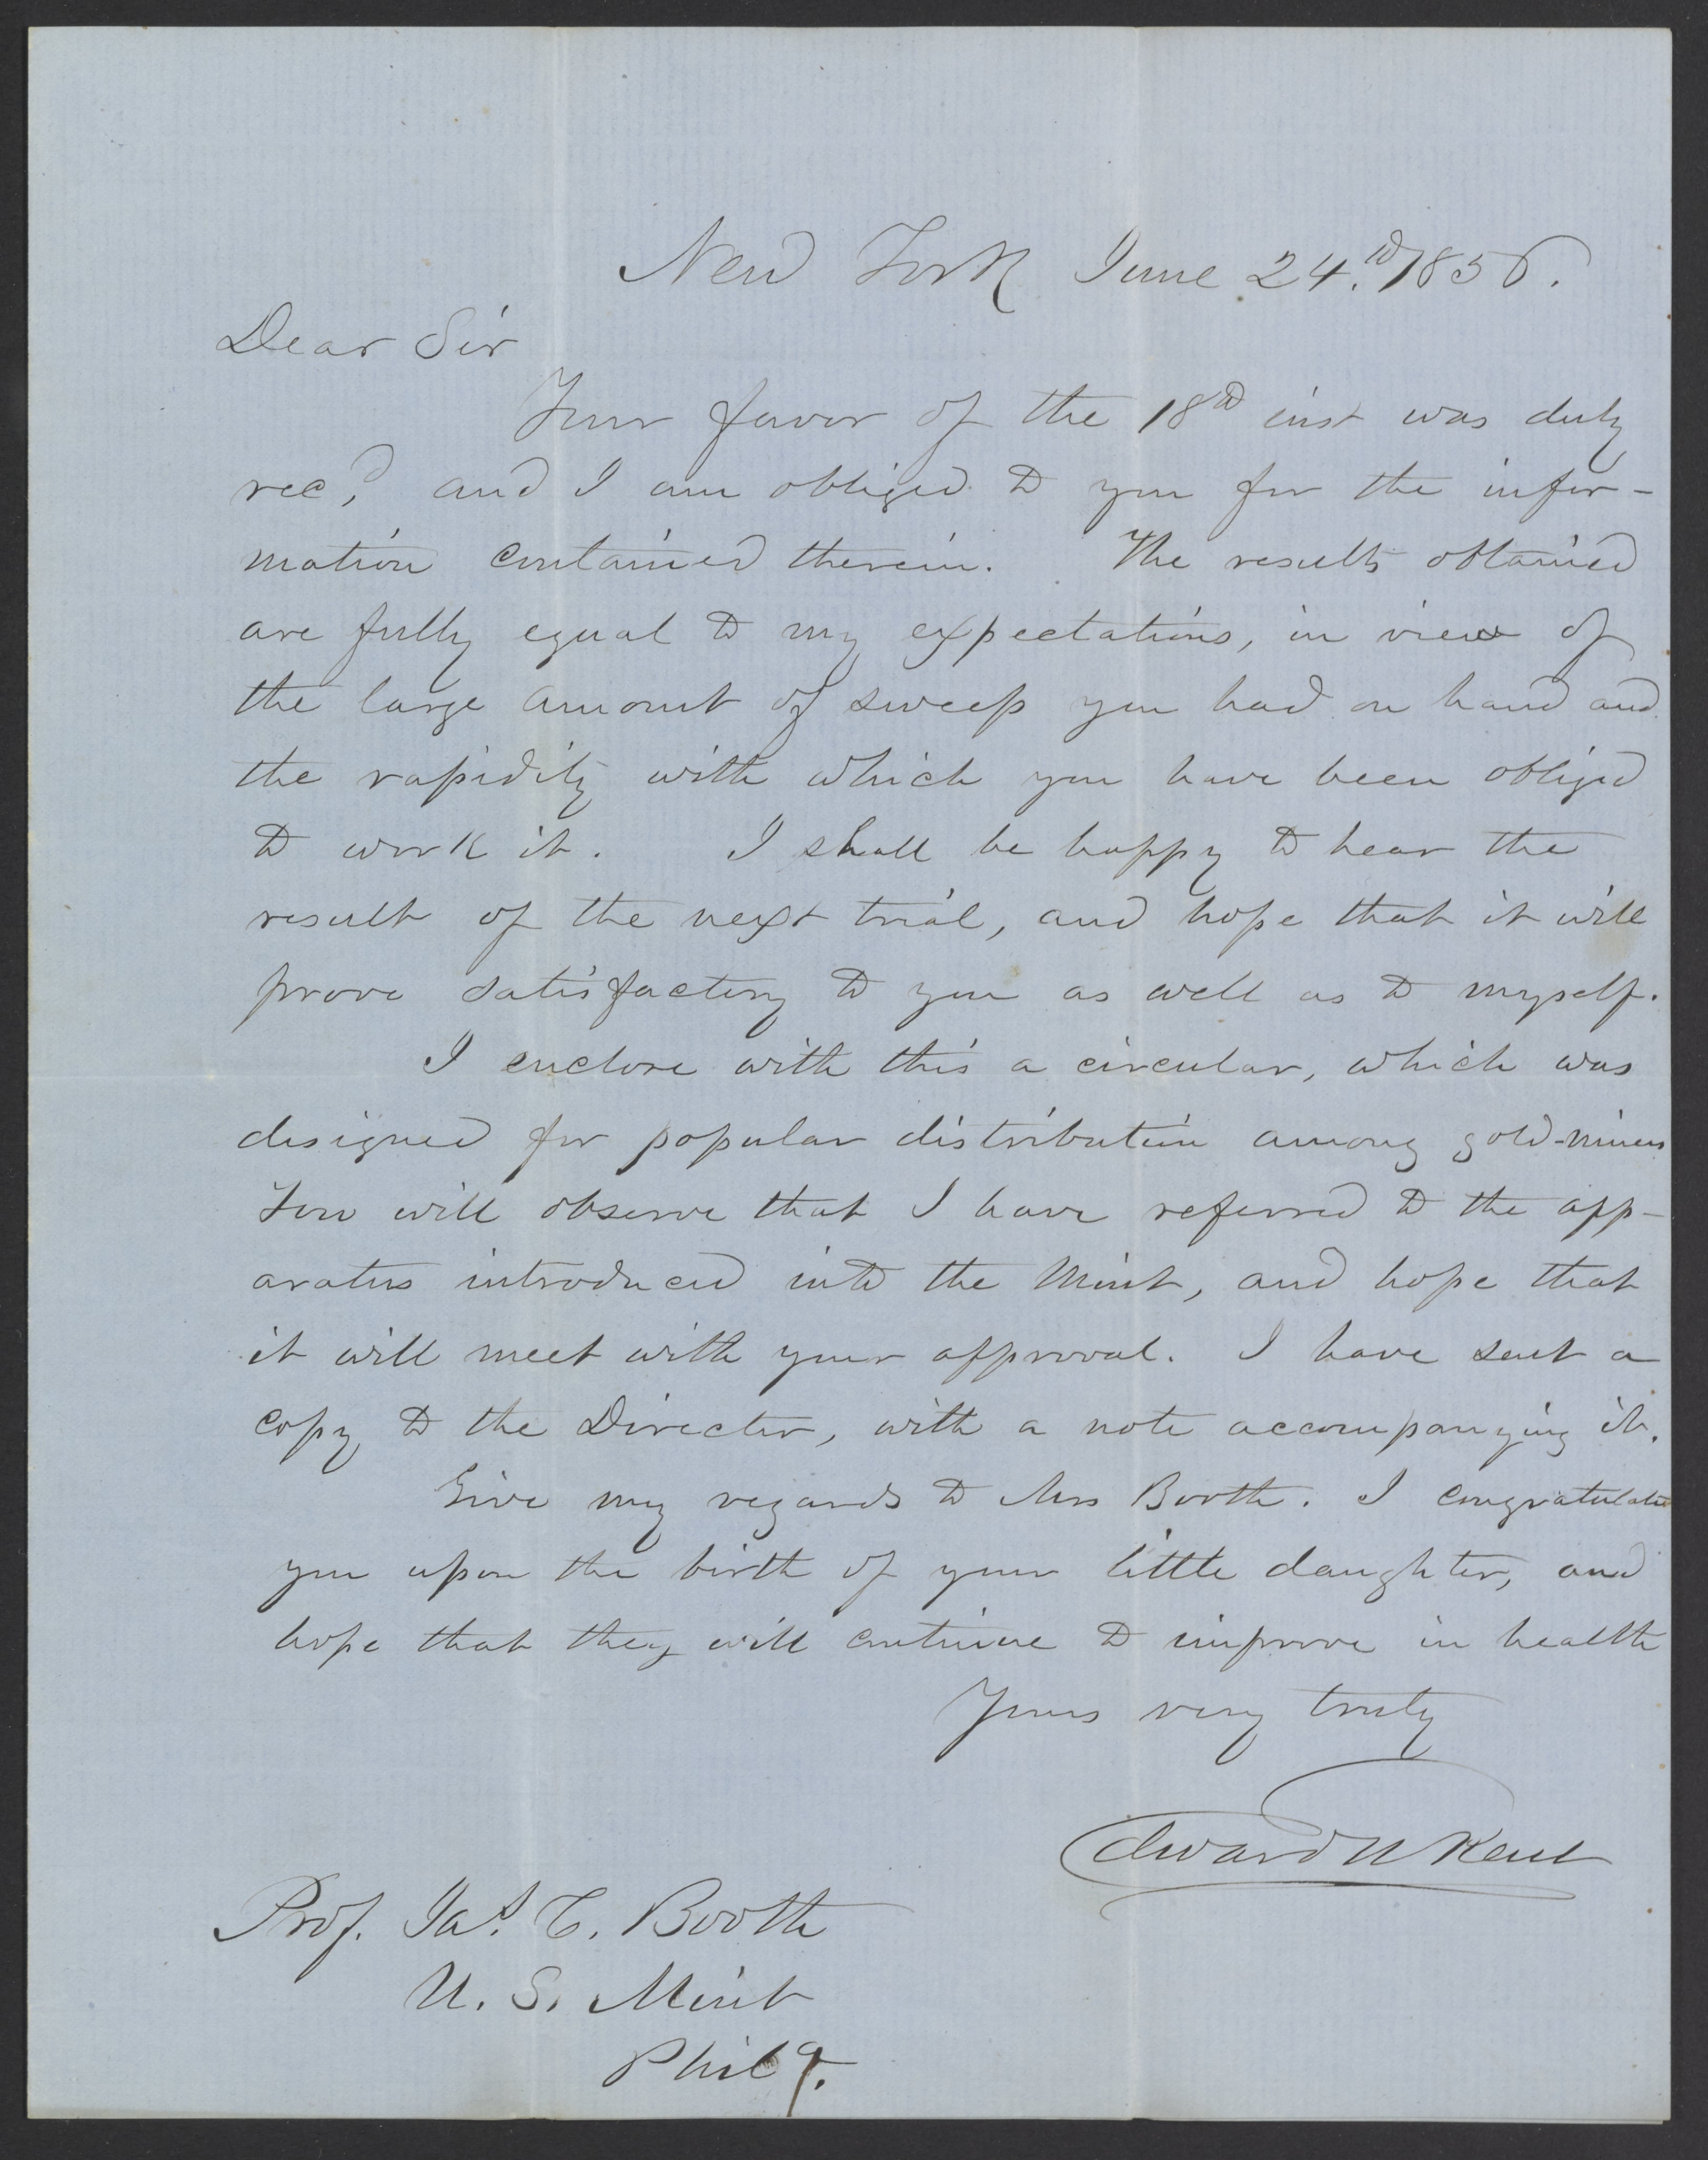 New York June 24.th 1856.
Dear Sir
Your favor of the 18th inst was duly
recd, and I am obliged to you for the infor-
mation contained therein. The results obtained
are fully equal to my expectations, in view of
the large amount of sweep you had on hand and
the rapidity with which you have been obliged
to work it. I shall be happy to hear the
result of the next trial, and hope that it will
prove satisfactory to you as well as to myself.
I enclose with this a circular, which was
designed for popular distribution among gold-miners
You will observe that I have referred to the app-
aratus introduced into the Mint, and hope that
it will meet with your approval. I have sent a
copy to the Director, with a note accompanying it.
Give my regards to Mrs Booth. I congratulate
you upon the birth of your little daughter, and
hope that they will continue to improve in health
Yours very truly
Edward N Kent
Prof. Jas. C. Booth
U. S. Mint
Phila.